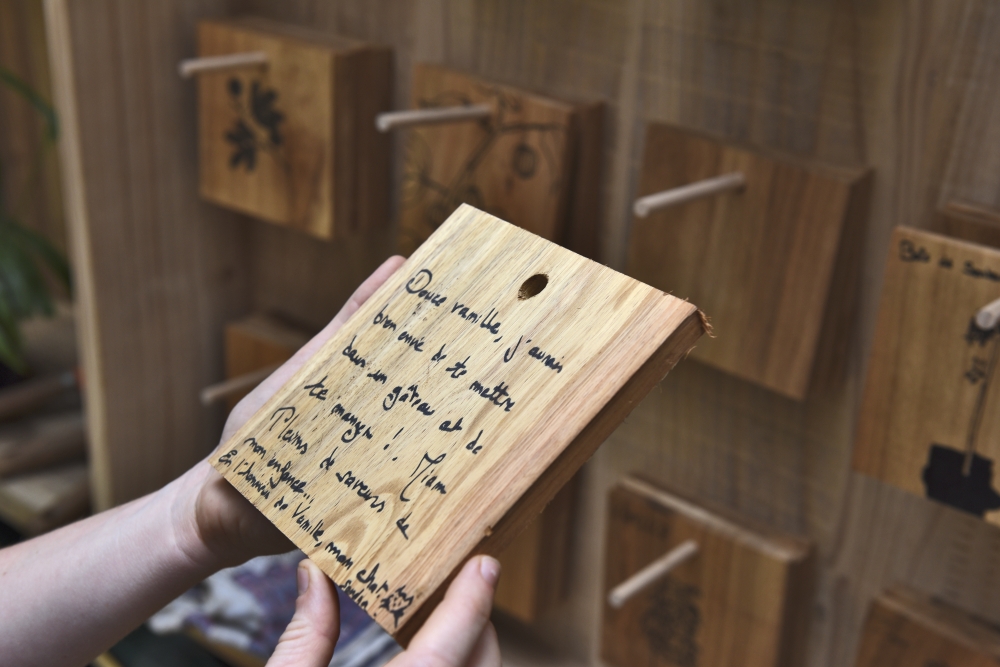 Douce vanille, j'aurais
bien envie de te mettre
dans un gâteau et de
te manger ! Miam
Pleins de saveurs de
mon enfance..
En l'honneur de Vanille, mon chat
Bois de